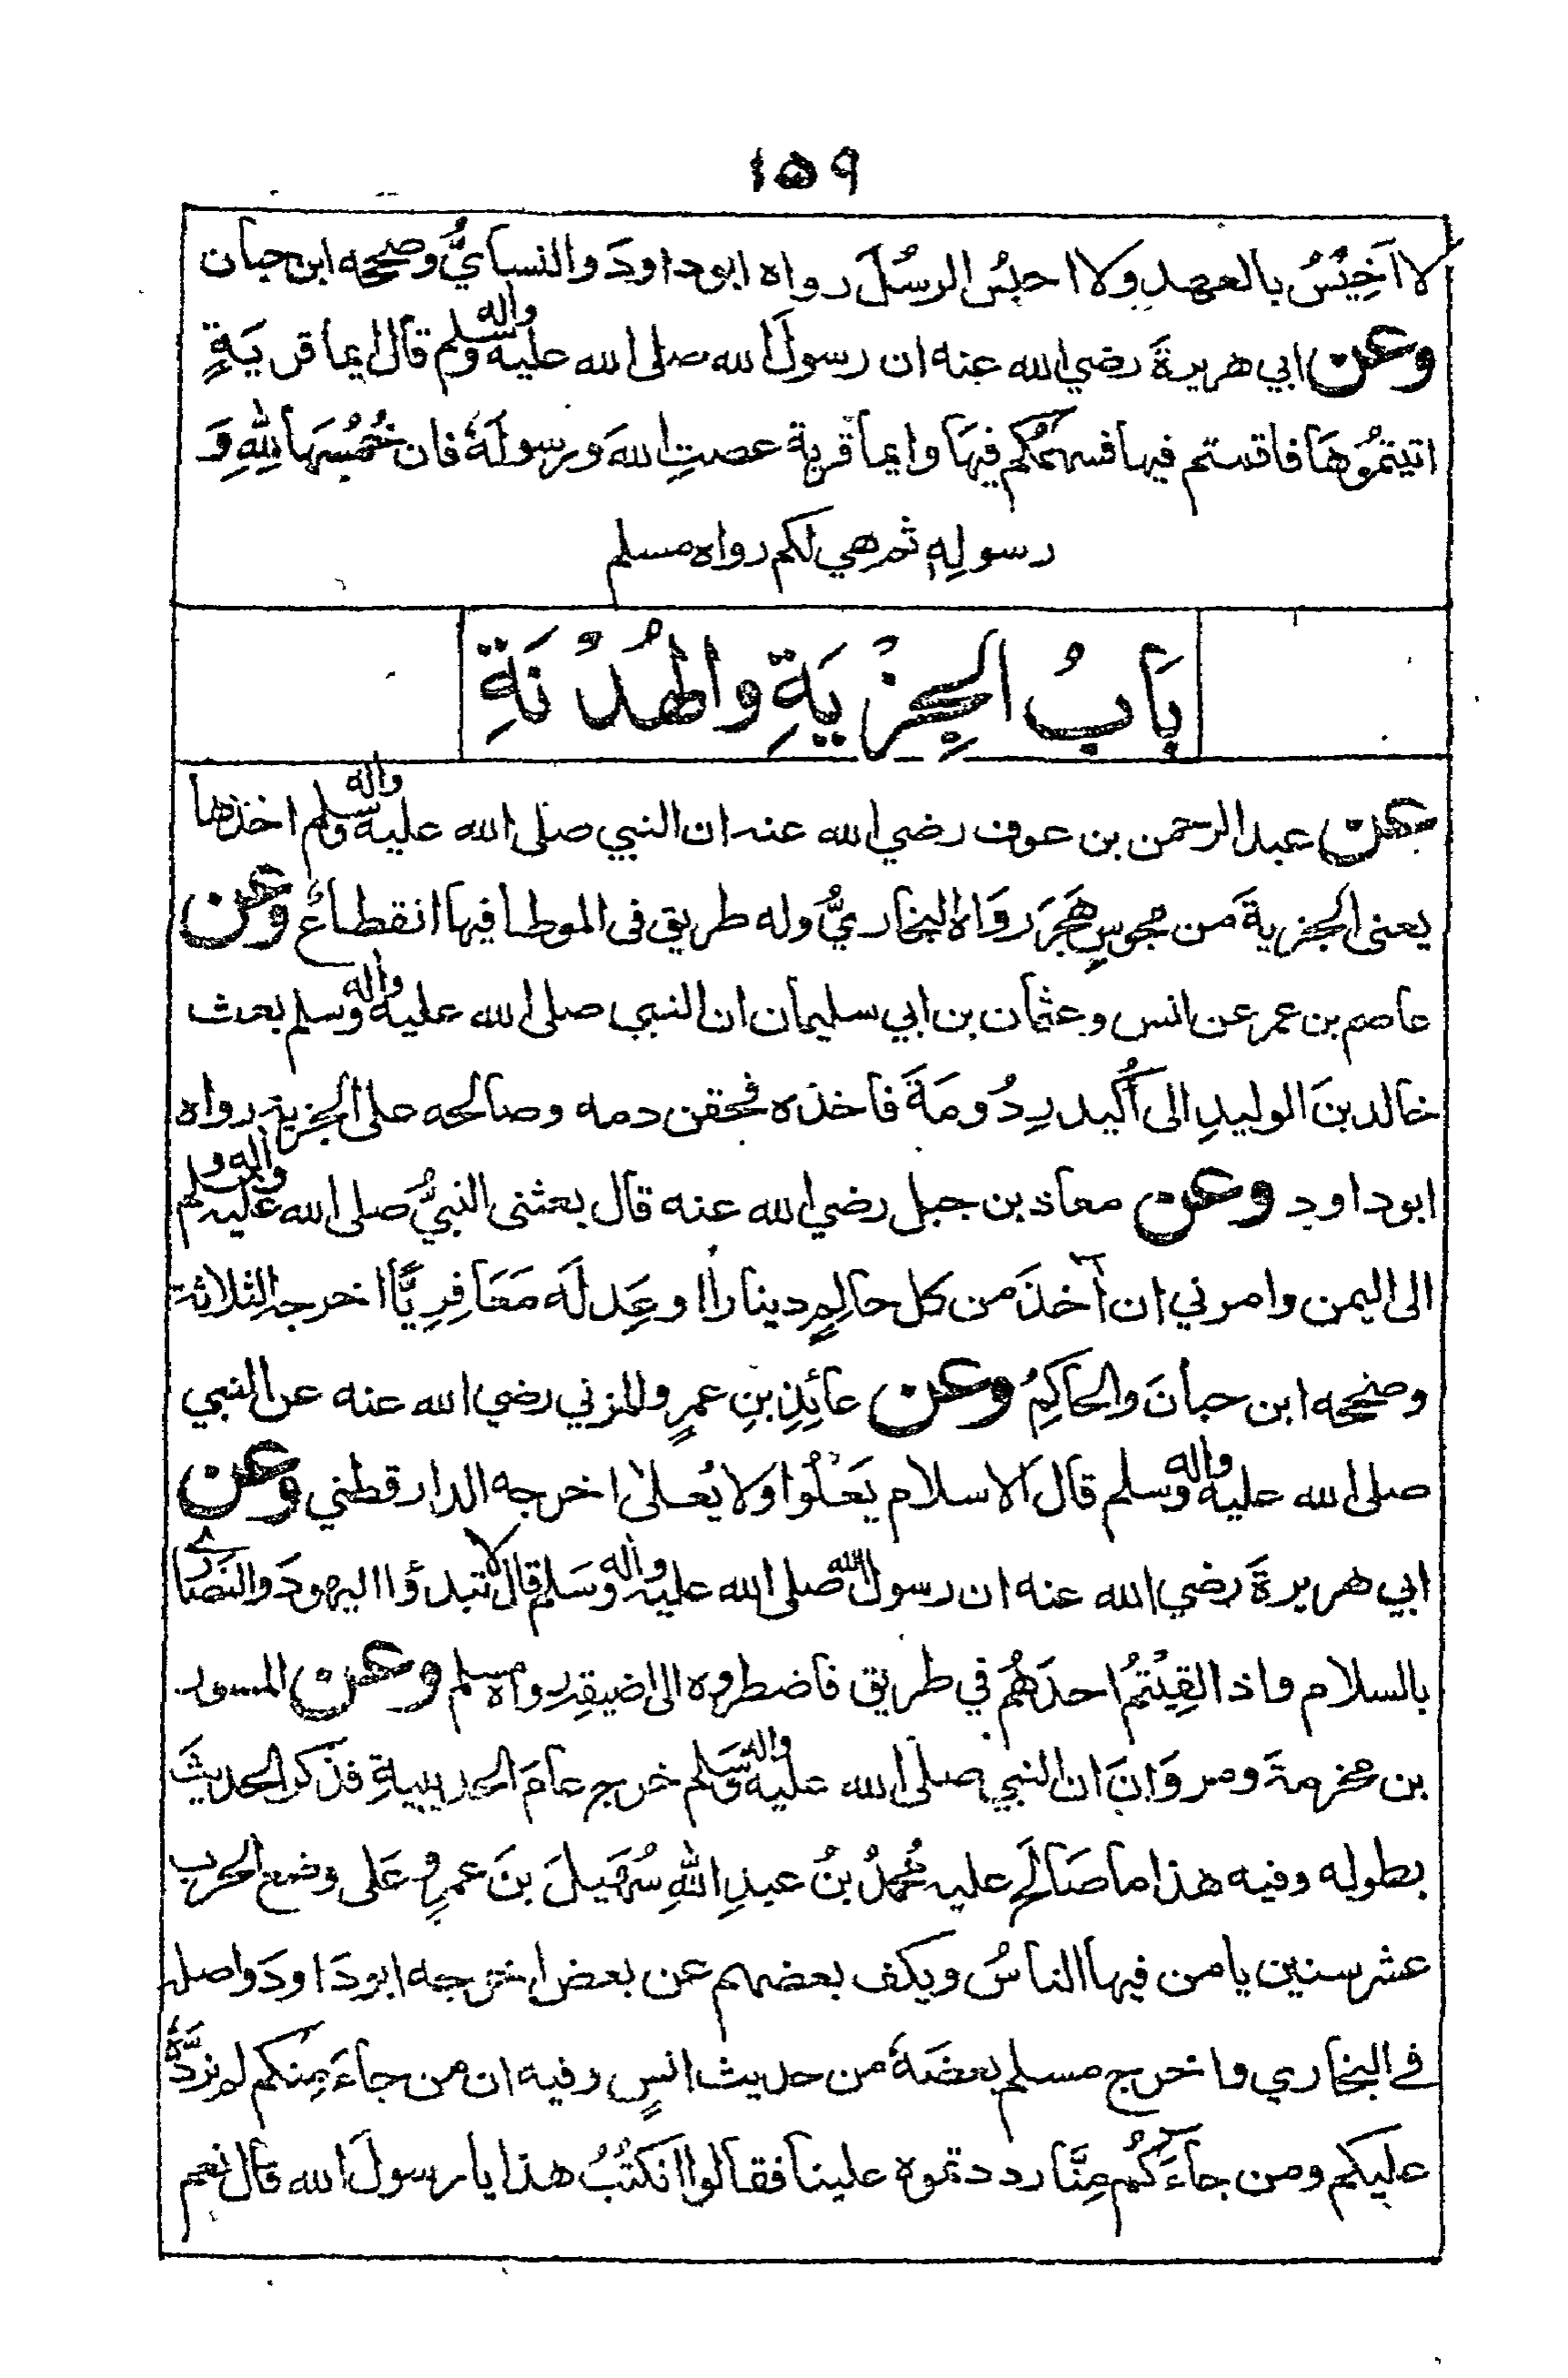 ١٥٩
لا اَخِيْسُ بالعهدِ ولا احبِسُ الرسُلَ رواه ابوداودَ والنسايُّ وصححه ابن حبان
وعن ابي هريرةَ رضي الله عنه ان رسولَ الله صلى الله عليه واله وسلم قال ايما قريَةٍ
اتيتمُوهَا فاقمتم فيها فسهمُكم فيهَا وايما قرية عصتِ اللهَ ورسولَهُ فان خُمُسَهَا لِلهِ وَ
رسولِهٖ ثم هي لكم رواه مسلم
بَابُ الجِزْيَةِ والهُدْنَةِ
عن عبد الرحمن بن عوف رضي الله عنه ان النبي صلى الله عليه واله وسلم اخذها
يعنى الجزيةَ من مجوسِ هَجَرَ رَوَاه البخاريُّ وله طريق فى الموطا فيها انقطاعٌ وعن
عاصم بن عمر عن انس وعثمان بن ابي سليمان ان النبي صلى الله عليه واله وسلم بعث
خالد بنَ الوليدِ الى اُكيدرِ دُومَةَ فاخذه فحقن دمه وصالحه على الجزية رواه
ابوداود وعن معاذ بن جبل رضي الله عنه قال بعثنى النبيُّ صلى الله عليه واله وسلم
الى اليمن وامرني ان آخذَ من كل حالِمٍ دينارًا اوعَِدلَه مَعَافِرِيًّا اخرجه الثلاثة
وصححه ابن حبانَ والحاكِمُ وعن عائِذِ بنِ عمرٍو المزني رضي الله عنه عن النبي
صلى الله عليه واله وسلم قال الاسلام يَعْلُوا ولا يُعلىٰ اخرجه الدارقطني وعن
ابي هريرةَ رضي الله عنه ان رسول الله صلى الله عليه واله وسَلم قال لا تبدؤا اليهودَ والنصَارٰى
بالسلام واذا لقِيْتمُ احدَهُم في طريق فاضطروه الى اضيقِه رواه مسلم وعن المسور
بن مخرمةَ ومروَانَ ان النبي صلى الله عليه واله وسَلم خرج عامَ الحديبيةِ فذكر الحديثَ
بطوله وفيه هذا ما صَالَح عليه محُمدُ بنُ عبدِ اللهِ سُهَيلَ بنَ عمرٍو عَلى وضع الحرب
عشر سنين يا من فيها الناسُ ويكف بعضهم عن بعض اخرجه ابودَاودَ واصله
فے البخاري واخرج مسلم بعضَهُ من حديث انسٍ وفيه ان من جاءَ مِنكم لم نردَّهُ
عليكم ومن جاءَكُم مِنَّا رددتموه علينا فقالوا انكتُبُ هذا يا رسولَ الله قال نعم